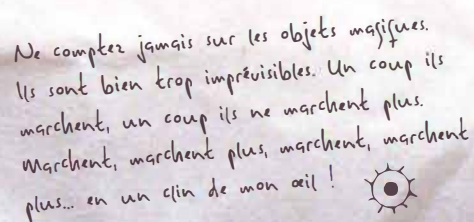 Ne comptez jamais sur les objets magiques.
Ils sont bien trop imprévisibles. Un coup ils
marchent, un coup ils ne marchent plus.
Marchent, marchent plus, marchent, marchent
plus... en un clin de mon œil !